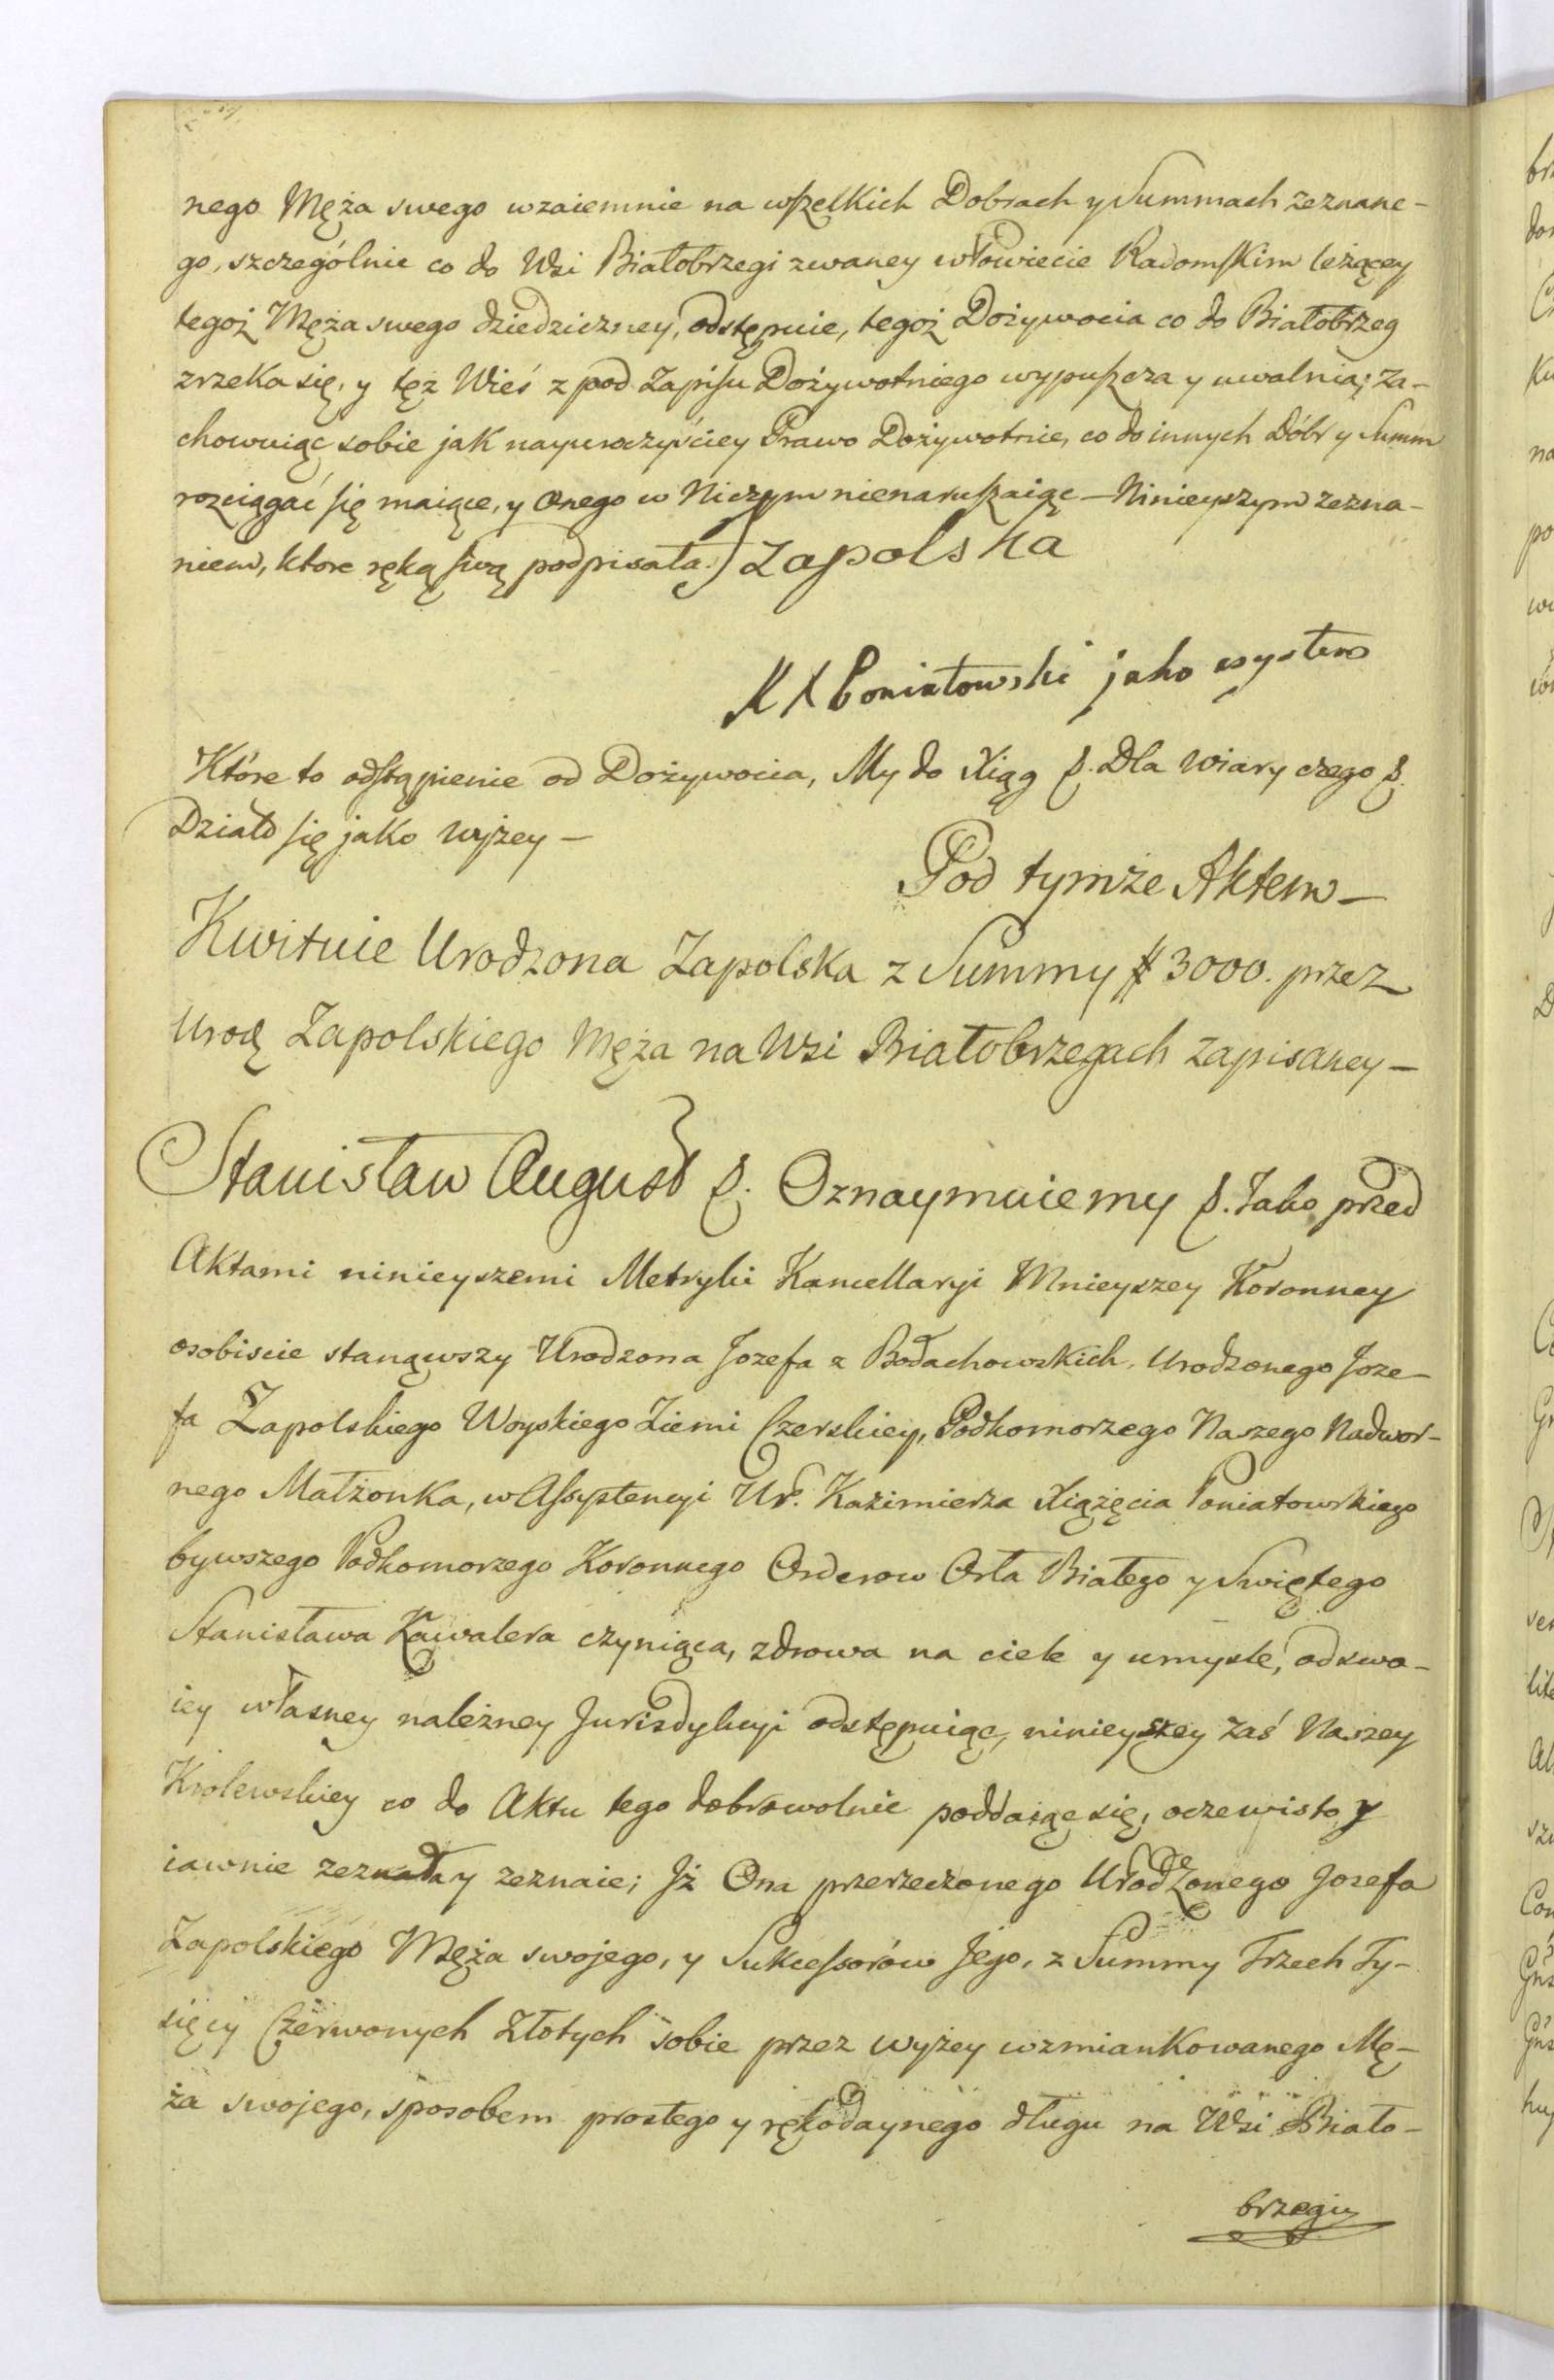 nego Męża swego wzaiemnie na wszelkich Dobrach y Summach zeznane-
go, szczególnie co do Wsi Białobrzegi zwaney w Powiecie Radomskim leżącey
tegoż Męża swego dziedziczney, odstępuie, tegoż Dożywocia co do Białobrzeg
zrzeka się, y tęż Wieś z pod Zapisu Dożywotniego wypuszcza y uwalnia; za-
chowuiąc sobie jak nayuroczyściey Prawo Dożywotnie, co do innych Dóbr y Summ
rozciągać się maiące, y onego w Niczym nienaruszaiąc — Ninieyszym zezna-
niem, ktore ręką swą podpisała.) Zapolska
K X Poniatowski jako assystens
Które to odstąpienie od Dożywocia, My do Xiąg &. Dla Wiary czego &.
Działo się jako wyżey —
Pod tymże Aktem —
Kwituie Urodzona Zapolska z Summy # 3000. przez
Urod Zapolskiego Męża na Wsi Białobrzegach zapisaney —
Stanisław August &. Oznaymuiemy &. Jako przed
Aktami ninieyszemi Metryki Kancellaryi Mnieyszey Koronney
osobiscie stanąwszy Urodzona Jozefa z Bodachowskich, Urodzonego Joze-
fa Zapolskiego Woyskiego Ziemi Czerskiey, Podkomorzego Naszego Nadwor-
nego Małżonka, w Assystencyi Ur. Kazimierza Xiążęcia Poniatowskiego
bywszego Podkomorzego Koronnego Orderow Orła Białego y Swiętego
Stanisława Kawalera czyniąca, zdrowa na ciele y umysle, od swo-
iey własney należney Jurisdykcyi odstępuiąc, ninieyszey zaś Naszey
Krolewskiey co do Aktu tego dobrowolnie poddaiąc się, oczewisto y
iawnie zeznała y zeznaie; Jż Ona przerzeczonego Urodzonego Jozefa
Zapolskiego Męża swojego, y Sukcessorów Jego, z Summy Trzech Ty-
sięcy Czerwonych Złotych sobie przez wyżey wzmiankowanego Mę-
ża swojego, sposobem prostego y rękodaynego długu na Wsi Biało-
brzegi